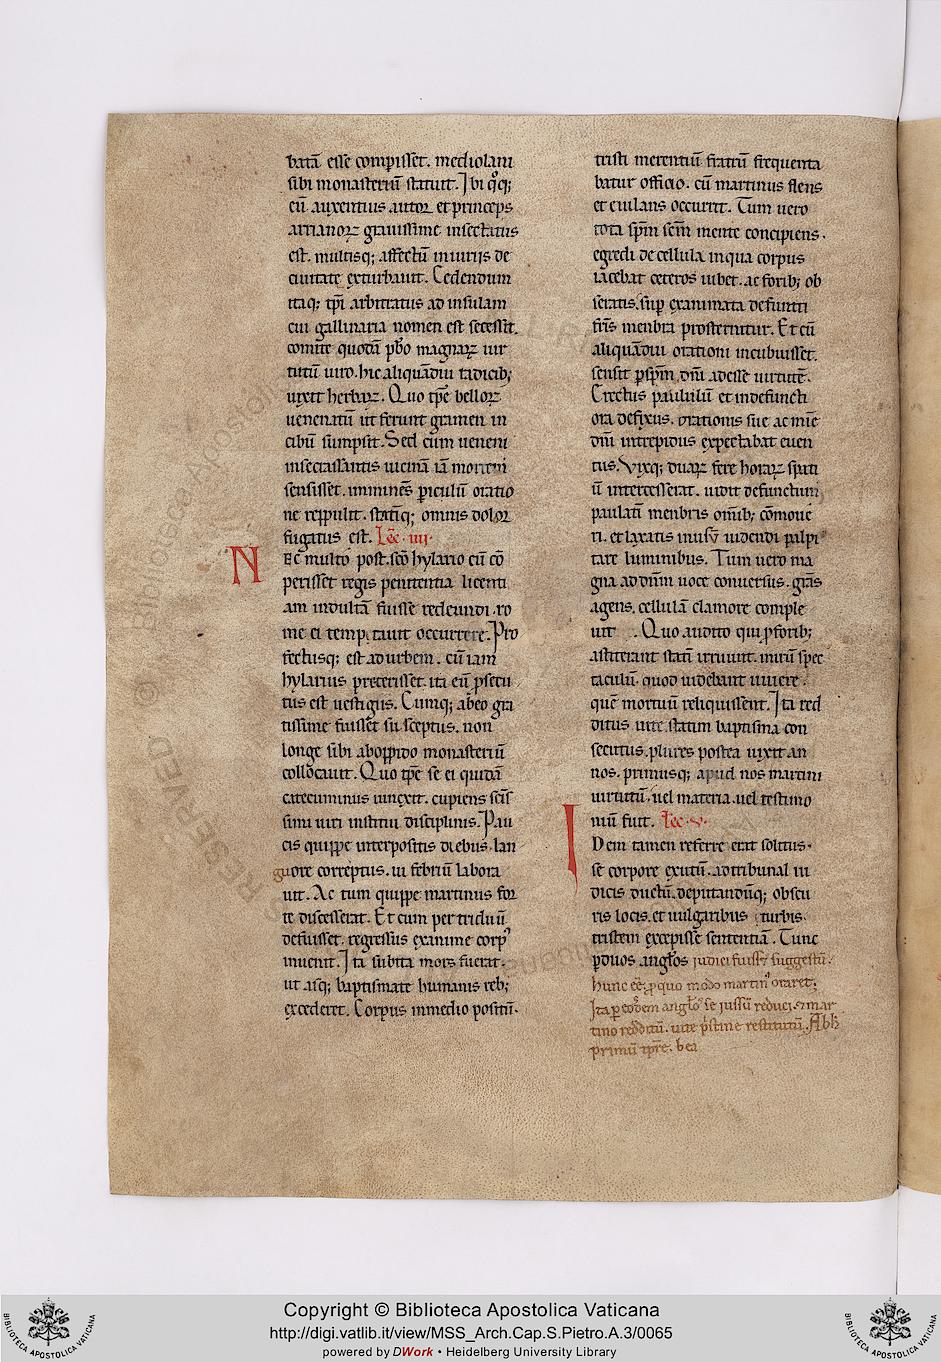 batā esse comp̄isset. mediolani
sibi monasteriū statuit. Ibi q̊q;
cū auxentius autor et princeps
arrianoꝝ grauissime insectatus
est. multisq; affectū iniuriis de
ciuitate exturbauit. Cedendum
itaq; tp̄i arbitratus ad insulam
cui gallinaria nomen est secessit.
comite quodā pb̄o magnaꝝ uir
tutū uiro. hic aliquādiu radicib;
uixit herbaꝝ. Quo tp̄e bellorꝝ
uenenatū ut ferunt gramen in
cibū sumpsit. Sed cum ueneni
insecrassantis uicinā iā mortem
sensisset. imminēs ꝑiculū oratio
ne reppulit. statīq; omnis dolor
fugatus est. Lēc. iiii.
NEc multo post. scō hylario cū cō
perisset regis penitentia licenti
am indultā fuisse redeundi. ro
me ei temptauit occurrere. Pro
fectusq; est ad urbem. cū iam
hylarius preterisset. ita eū ꝓsecu
tus est uestigiis. Cumq; ab eo gra
tissime fuisset susceptus. non
longe sibi ab oppido monasteriū
collocauit. Quo tp̄e se ei quidā
catecuminus iunxit. cupiens scīs
simi uiri institui disciplinis. Pau
cis quippe interpositis diebus. lan
guore correptus. ui febriū labora
uit. Ac tum quippe martinus for
te discesserat. Et cum per triduū
defuisset. regressus exanime corp᾿
inuenit. Ita subita mors fuerat.
ut absq; baptismate humanis reb;
excederet. Corpus in medio positū.
tristi merentiū fratrū frequenta
batur officio. cū martinus flens
et eiulans occurrit. Tum uero
tota sp̄m sc̄m mente concipiens.
egredi de cellula in qua corpus
iacebat ceteros iubet. ac forib; ob
seratis. sup̄ exanimata defuncti
fr̄is menbra prosternitur. Et cū
aliquādiu orationi incubuisset.
sensit ꝑ sp̄m dn̄i adesse uirtutē.
Erectus paululū et in defuncti
ora defixus. orationis sue ac mīe
dn̄i intrepidus expectabat euen
tus. Vixq; duaꝝ fere horaꝝ spati
ū intercesserat. uidit defunctum
paulatī menbris om̄ib; cōmoue
ri. et laxatis in usū uidendi palpi
tare luminibus. Tum uero ma
gna ad dn̄m uoce conuersus. grās
agens. cellulā clamore comple
uit. Quo audito qui ꝓ forib;
astiterant statī irruunt. mirū spec
taculū. quod uidebant uiuere.
quē mortuū reliquissent. Ita red
ditus uite statim baptisma con
secutus. plures postea uixit an
nos. primusq; apud nos martini
uirtutū. uel materia. uel testimo
niū fuit. Lec. v.
IDem tamen referre erat solitus.
se corpore exutū. ad tribunal iu
dicis ductū. deputandūq; obscu
ris locis. et uulgaribus turbis.
tristem excepisse sententiā. Tunc
ꝑ duos angl̄os iudici fuisse suggestū.
hunc ee᷑. ꝓ quo modo martin᾿ oraret;
Ita ꝑ eosdem angl̄os se iussū reduci. ⁊ mar
tino redditū. uite p̄stine restitutū. Ab h
primū tp̄re. bea
Copyright © Biblioteca Apostolica Vaticana
http://digi.vatlib.it/view/MSS_Arch.Cap.S.Pietro.A.3/0065
powered by DWork • Heidelberg University Library